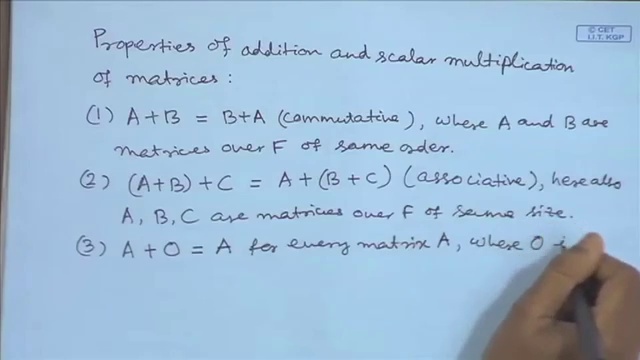 © CET
I.I.T. KGP
Properties of addition and scalar multiplication
of matrices:
(1) A+B = B+A (commutative), where A and B are
matrices over F of same order.
(2) (A+B)+C = A+(B+C) (associative), here also
A, B, C are matrices over F of same size.
(3) A+O = A for every matrix A, where O i